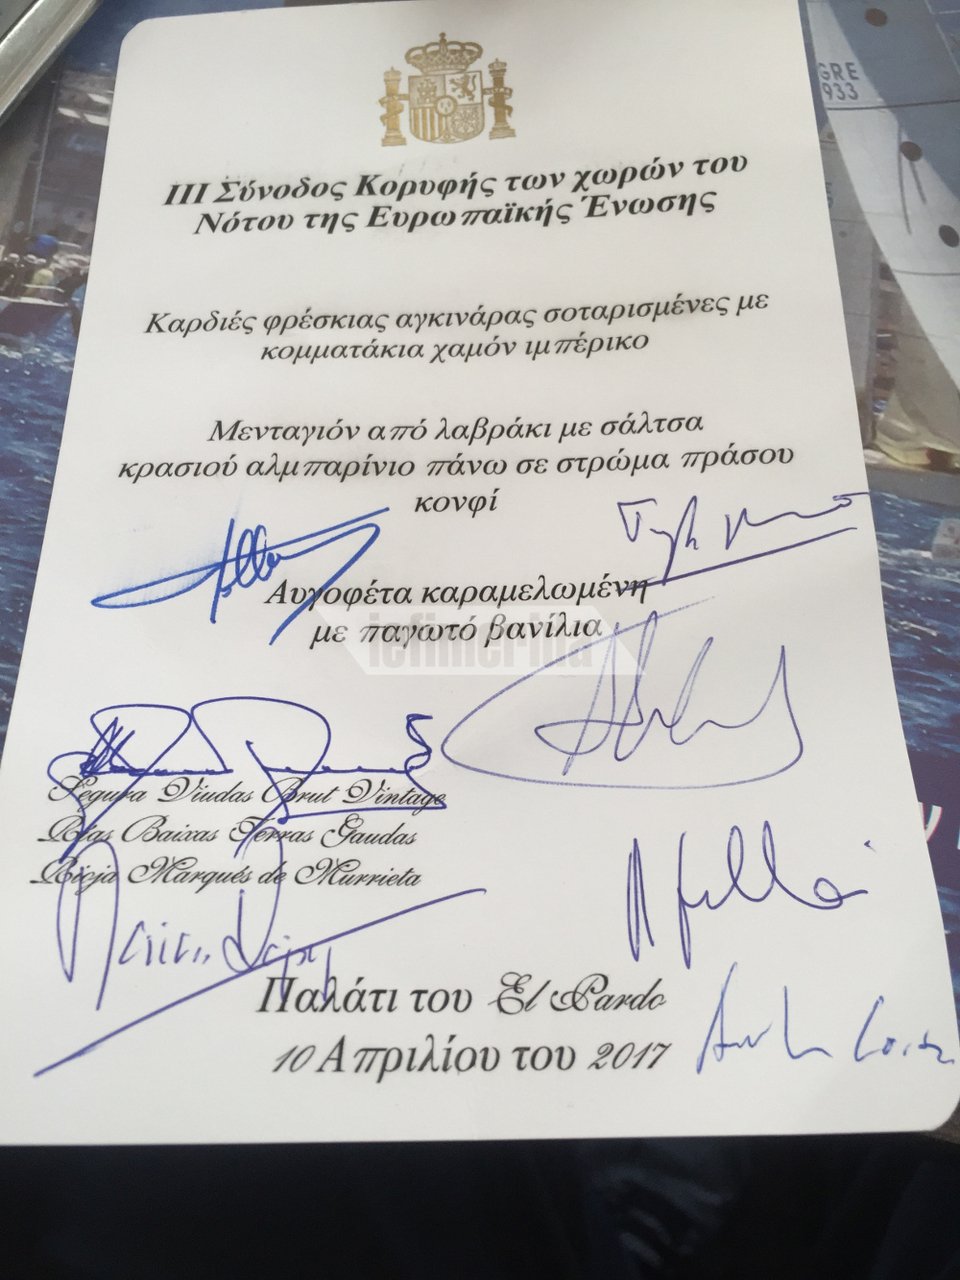 GRE
933
III Σύνοδος Κορυφής των χωρών του
Νότου της Ευρωπαϊκής Ένωσης
Καρδιές φρέσκιας αγκινάρας σοταρισμένες με
κομματάκια χαμόν ιμπέρικο
Μενταγιόν από λαβράκι με σάλτσα
κρασιού αλμπαρίνιο πάνω σε στρώμα πράσου
κονφί
Αυγοφέτα καραμελωμένη
με παγωτό βανίλια
iefimerida
Segura Viudas Brut Vintage
Rías Baixas Terras Gaudas
Rioja Marqués de Murrieta
Παλάτι του El Pardo
10 Απριλίου του 2017